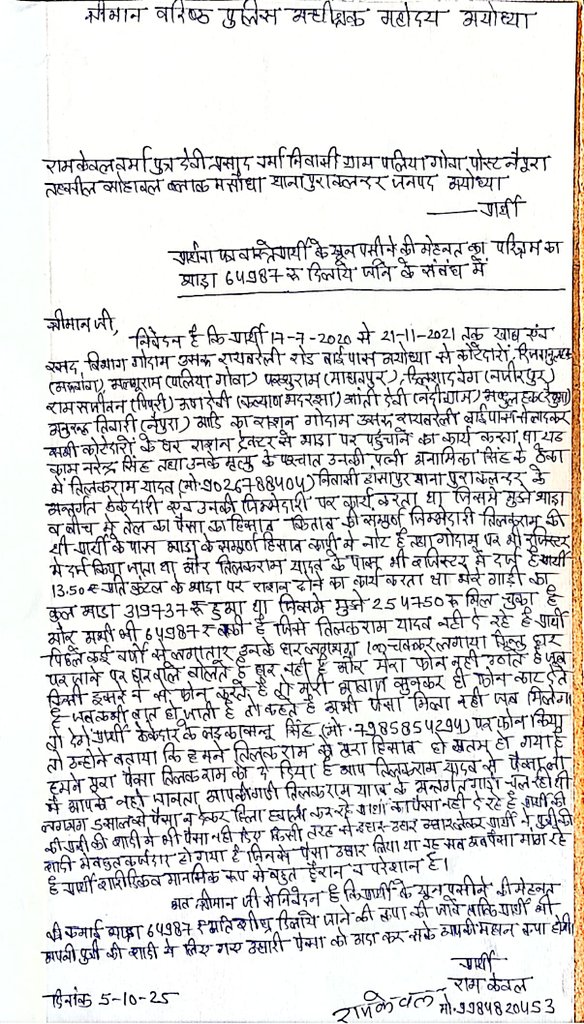 श्रीमान वरिष्ठ पुलिस अधीक्षक महोदय अयोध्या
रामकेवल वर्मा पुत्र देवी प्रसाद वर्मा निवासी ग्राम पलिया गोवा पोस्ट नैपुरा
तहसील सोहावल ब्लाक मसौधा थाना पुराकलन्दर जनपद अयोध्या
— प्रार्थी
प्रार्थना पत्र वास्ते प्रार्थी के खून पसीने की मेहनत का परिश्रम का
भाड़ा 64987 रू दिलाये जाने के संबंध में
श्रीमान जी,
निवेदन है कि प्रार्थी 17-7-2020 से 21-11-2021 तक खाद्य एवं
रसद विभाग गोदाम उसरू रायबरेली रोड बाईपास अयोध्या से कोटेदारों
(पलिया गोवा) परशुराम (माधवपुर), दिलशाद बेग (नजीरपुर)
राम सजीवन (पिपरी) ऊषा देवी (कल्याण भदरसा) शांती देवी (नंदीग्राम)
तिवारी (नैपुरा) आदि का राशन गोदाम उसरू रायबरेली बाईपास से लादकर
सभी कोटेदारों के घर राशन ट्रैक्टर से भाड़ा पर पहुंचाने का कार्य करता था यह
काम नरेन्द्र सिंह तथा उनके मृत्यु के पश्चात उनकी पत्नी अनामिका सिंह के ठेका
में तिलकराम यादव (मो. 9026788404) निवासी हांसापुर थाना पुराकलन्दर के
अन्तर्गत ठेकेदारी उनकी जिम्मेदारी पर कार्य करता था जिसमे मुझे भाड़ा
व बीच में तेल का पैसा का हिसाब किताब की सम्पूर्ण जिम्मेदारी तिलकराम की
थी प्रार्थी के पास भाड़ा के सम्पूर्ण हिसाब कापी में नोट है तथा गोदाम पर भी रजिस्टर
में दर्ज किया जाता था और तिलकराम यादव के पास भी रजिस्टर में दर्ज है प्रार्थी
13.50 रू प्रति कुंटल के भाड़ा पर राशन ढोने का कार्य करता था मेरे गाड़ी का
कुल भाड़ा 319737 रू हुआ था जिसमे मुझे 254750 रू मिल चुका है
और अभी भी 64987 रू बाकी है जिसे तिलकराम यादव नही दे रहे है प्रार्थी
पिछले कई वर्षो से लगातार इनके घर लगभग चक्कर लगाया किन्तु हर
पर जाने पर घर वाले बोलते है घर नही है और मेरा फोन नही उठाते है जब
किसी दूसरे नं से फोन करते है तो मेरी आवाज सुनकर ही फोन काट देते
है जब कभी बात हो जाती है तो कहते है अभी पैसा मिला नही जब मिलेगा
तो देंगे प्रार्थी ठेकेदार के लड़का सिंह (मो. 7985854294) पर फोन किया
तो उन्होने बताया कि हमने तिलकराम को पूरा हिसाब हो खतम हो गया है
हमने पूरा पैसा तिलकराम को दे दिया है आप तिलकराम यादव से पैसा लो
मै आपको नही जानता आपकी गाड़ी तिलकराम यादव के अन्तर्गत गाड़ी चल रही थी
लगभग 5 साल से पैसा न देकर हीला हवाली कर रहे प्रार्थी का पैसा नही दे रहे है प्रार्थी की
की पुत्री की शादी मे भी पैसा नही दिए किसी तरह से इधर-उधर उधार लेकर प्रार्थी ने पुत्री की
शादी मे बहुत कर्जदार हो गया है जिनसे पैसा उधार लिया था वह सब अब पैसा मांग रहे
है प्रार्थी शारीरिक व मानसिक रूप से बहुत हैरान व परेशान है।
अतः श्रीमान जी से निवेदन है कि प्रार्थी के खून पसीने की मेहनत
की कमाई भाड़ा 64987 रू अति शीघ्र दिलाये जाने की कृपा की जावे ताकि प्रार्थी भी
अपनी पुत्री की शादी मे लिए गए उधारी पैसा को अदा कर सके आपकी महान कृपा होगी
प्रार्थी
राम केवल
दिनांक 5-10-25
रामकेवल
मो. 9984820453